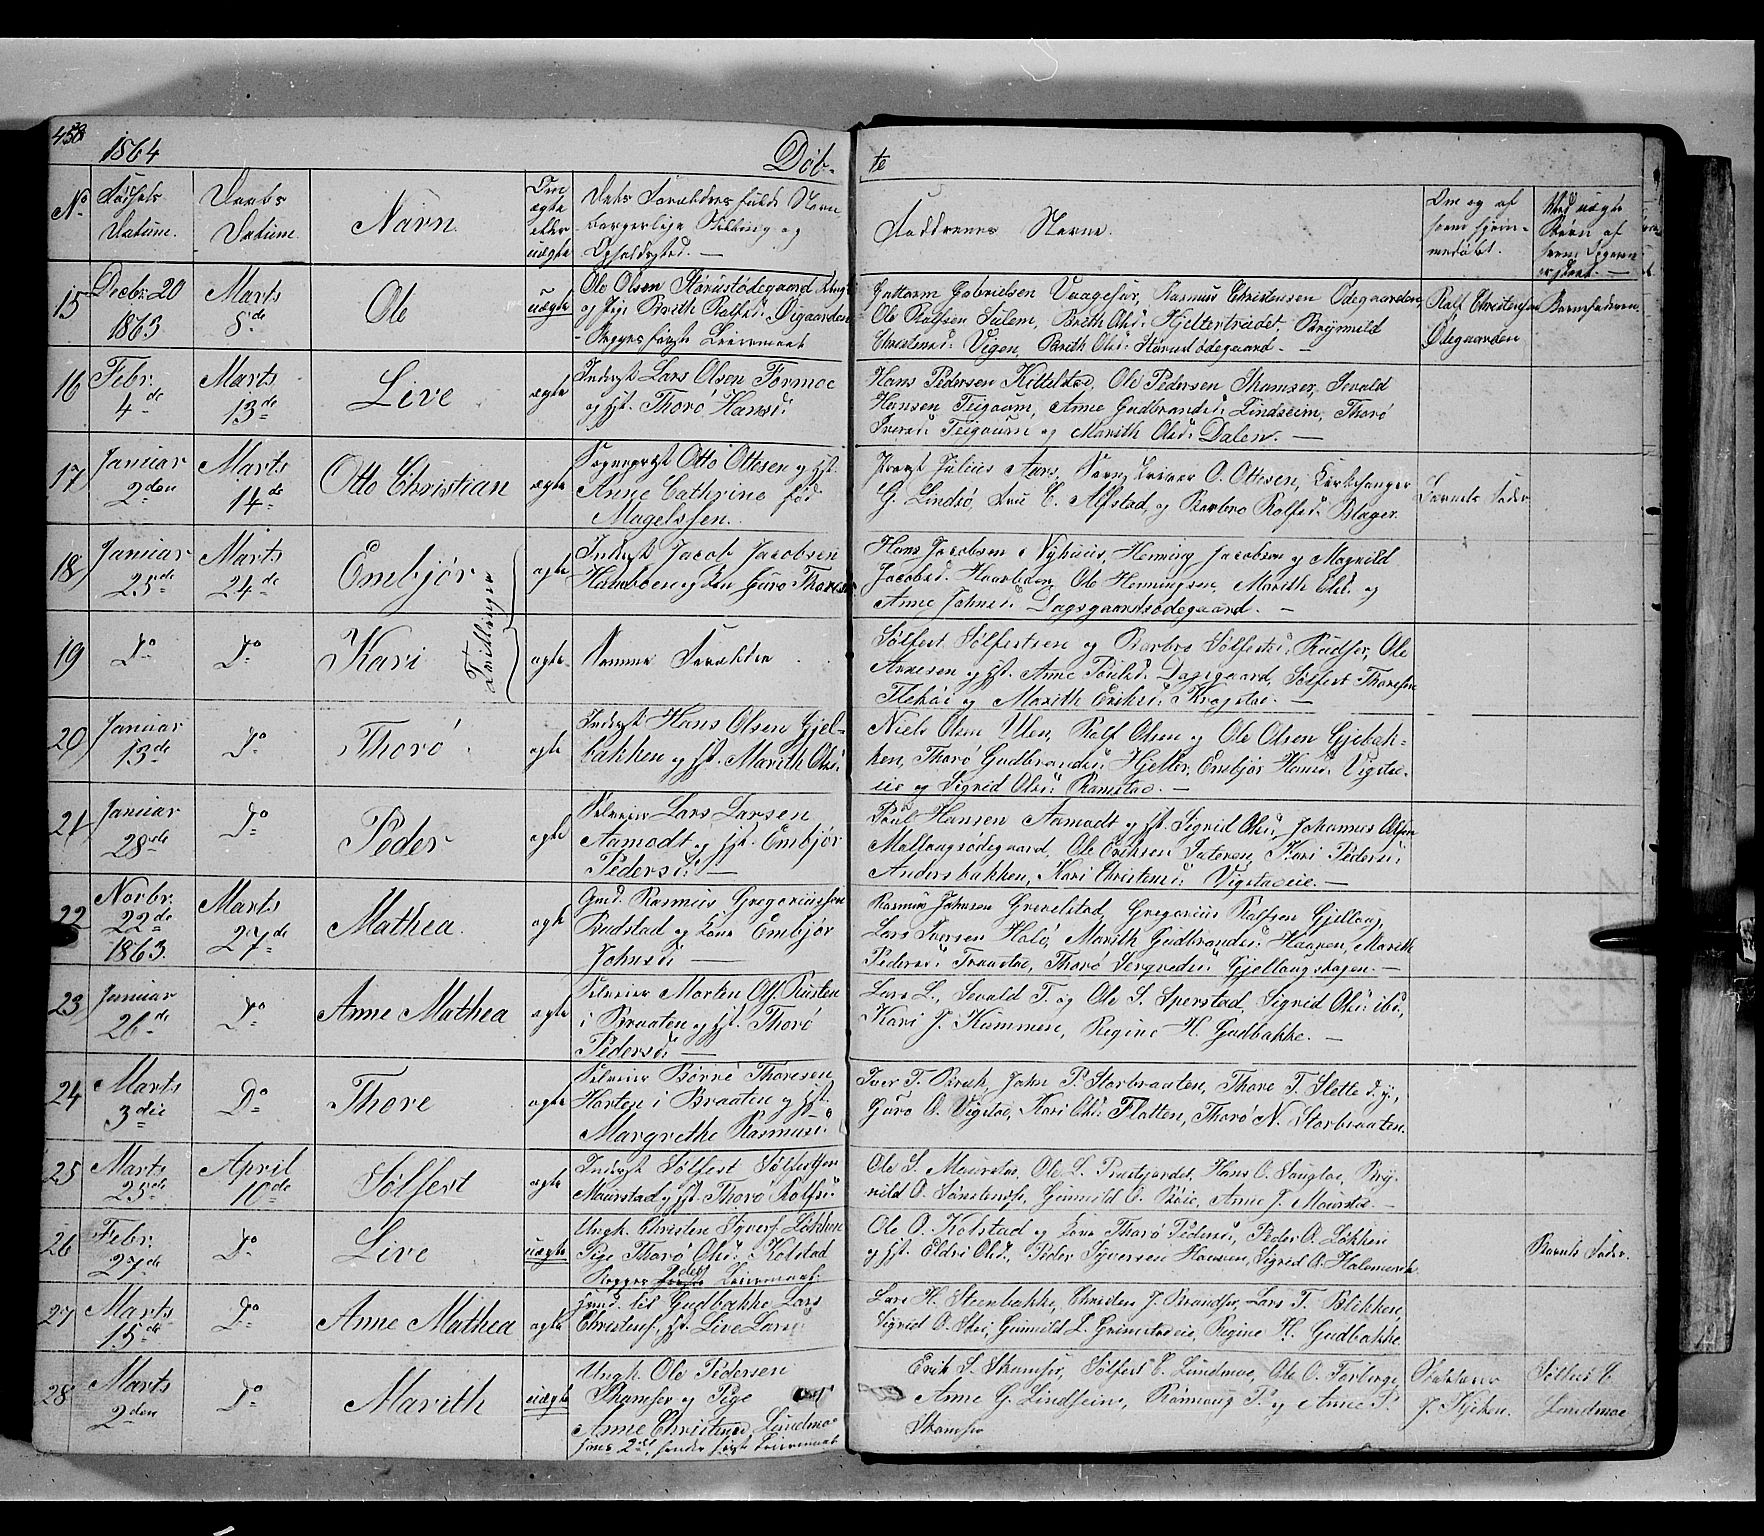 458
1864
Døb-
te
No
Fødsels
Datum.
Daabs
Datum.
Navn
Om
ægte
eller
uægte
Dets Forældres fulde Navn
borgerlige Stilling og
Opholdssted. —
Faddrenes Navne.
Om og af
hvem hjem-
medøbt.
Ved uægte
Børn af
hvem Opgaven
er skeet. —
15
Decbr. 20
1863
Marts
8de
Ole
uægte
Ole Olsen
og Pige Brith Rolfsd: Øigaarden
Begges første Leiermaal
Guttorm Gabrielsen Vaagesar, Rasmus Christensen Ødegaarden,
Ole Rolfsen Sulem, Brith Olsd: Hjeltertrædet, Brynild
Christensd: Vigen, Brith Olsd:
Rolf Christensen
Ødegaarden
Barnefaderen
16
Febr.
4de
Marts
13de
Live
ægte
Inderst Lars Olsen Formoe
og Hst. Thorø Hansd:
Hans Pedersen Kittelstad, Ole Pedersen Skamser, Sevald
Hansen Teigaum, Anne Gudbrandsd: Lindseim, Thorø
Iversd: Teigaum og Marith Olsd: Dalen. —
17
Januar
2den
Marts
14de
Otto Christian
ægte
Sognepræst Otto Ottesen og Hst.
Anne Cathrine fød
Magelssen.
Provst Julius Aars, Sorenskriver O. Ottesen, Kirkesanger
G. Lindsø, Fru C. Alfstad, og Barbro Rolfsd: Blager.
Barnets Fader
18
Januar
25de
Marts
24de
Embjør
Tvillinger
ægte
Inderst Jacob Jacobsen
og Kone Guro Thoresd:
Hans Jacobsen Nyhuus, Henning Jacobsen og Magnild
Jacobsd: Haarleden, Ole Henningsen, Marith Olsd: og
Anne Johnsd: Dagsgaardsødegaard. —
19
Do
Do
Kari
ægte
Samme Forældre
Sølfest Sølfestsen og Barbro Sølfestd: Rudser, Ole
Arnesen og Hst. Anne Poulsd: Dagsgaard, Sølfest Thoresen
Flekøi og Marith Eriksd: Krogstad. —
20
Januar
13de
Do
Thorø
ægte
Inderst Hans Olsen Gjel-
bakken og Hst. Marith Olsd:
Niels Olsen Ulen, Rolf Olsen og Ole Olsen Gjebak-
ken, Thorø Gudbrandsd: Hjelter, Embjør Hansd: Vigsta-
eie og Sigrid Olsd: Ramstad. —
21
Januar
28de
Do
Peder
ægte
Selveier Lars Larsen
Aamodt og Hst. Embjør
Pedersd: —
Poul Hansen Aamodt og Hst. Sigrid Olsd:, Johannes Olsen
Mallangsødegaard, Ole Eriksen Sateren, Kari Pedersd:
Andersbakken, Kari Christensd: Vigstaeie. —
22
Novbr.
22de
1863.
Marts
27de
Mathea.
ægte
Gmd. Rasmus Gregoriussen
Rudstad og Kone Embjør
Johnsd: —
Rasmus Johnsen Grevelstad, Gregorius Rolfsen Gjellaug,
Lars Iversen Holø, Marith Gudbrandsd: Haagen, Marith
Pedersd: Fraastad, Thorø Sergvedsd: Gjellaugshagen. —
23
Januar
26de
Do
Anne Mathea
ægte
Selveier Morten Ols. Rusten
i Braaten og Hst. Thorø
Pedersd: —
Lars L., Sevald T. og Ole S. Sperstad, Sigrid Olsd: ibd.,
Kari J. Kummen, Regine H. Gudbakke. —
24
Marts
3die
Do
Thore
ægte
Selveier Børre Thoresen
Horten i Braaten og Hst.
Margrethe Rasmusd:
Iver T. Bræk, John P. Storbraaten, Thore T. Slette d.y.,
Guro O. Vigstad, Kari Olsd: Flatten, Thorø N. Storbraaten.
25
Marts
25de
April
10de
Sølfest
ægte
Inderst Sølfest Sølfestsen
Maurstad og Hst. Thorø Rolfsd:
Ole S. Maurstad, Ole L. Prestjordet, Hans O. Snugtad, Bry-
nild O. Sønstenss, Gunnild O. Bøie, Anne J. Maurstad. —
26
Febr.
27de
Do
Live
uægte
Ungk. Christen Syvers. Løkken
Pige Thorø Olsd: Kolstad
Begges 2det Leiermaal.
Ole O. Kolstad og Kone Thorø Pedersd:, Peder O. Løkken
og Hst. Eldri Olsd., Peder Syversen Haugen, Sigrid O.
Barnets Fader.
27
Marts
15de
Do
Anne Mathea
ægte
Gudbakke Lars
Christens., Hst. Live Larsd:
Lars H. Steenbakke, Christen J. Brandser, Lars T. Blikken,
Sigrid O. Stei, Gunnild L. Grimstadeie, Regine H. Gudbakke.
28
Marts
2den
Do
Marith
uægte
Ungk. Ole Pedersen
Skamser og Pige
Anne Christensd: Lundmoe
hans 2det, hendes første Leiermaal
Erik S. Skamser, Sølfest C. Lundmoe, Ole O.
Anne G. Lindseim, Rønnaug P. og Anne P.
Skamser
J. Kjøken.
Sølfest C.
Lundmoe